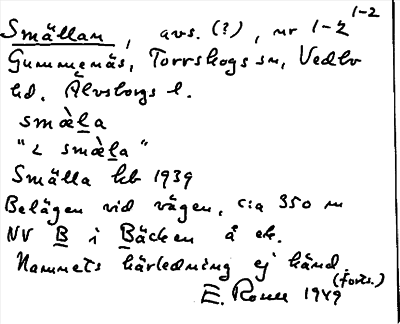 Smällan, avs. (?), nr 1-2 1-2
Gummenäs, Torrskogs sn, Vedbo
hd. Älvsborgs l.
smæ̀la
"L smæ̀la"
Smälla kb 1939
Belägen vid vägen, c:a 350 m
NV B i Bäcken å ek.
Namnets härledning ej känd.
(forts.)
E. Rosell 1949